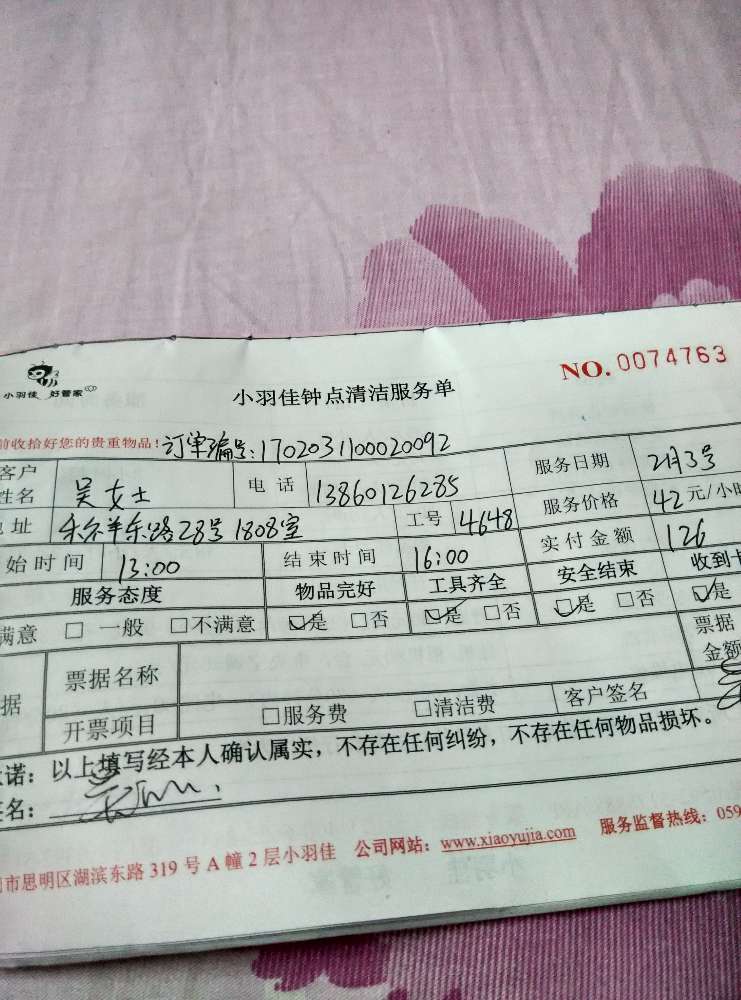 小羽佳 好管家
小羽佳钟点清洁服务单
NO. 0074763
前收拾好您的贵重物品! 订单编号:1702031100020092
客户姓名 吴女士 电话 13860126285 服务日期 2月3号
地址 禾祥东路28号1808室 工号 4648 服务价格 42元/小时
始时间 13:00 结束时间 16:00 实付金额 126
服务态度 物品完好 工具齐全 安全结束 收到卡
满意 □ 一般 □不满意 ☑是 □否 ☑是 □否 ☑是 □否 ☑是
据 票据名称 票据金额
开票项目 □服务费 □清洁费 客户签名
诺:以上填写经本人确认属实,不存在任何纠纷,不存在任何物品损坏。
签名:
市思明区湖滨东路 319 号 A 幢 2 层小羽佳 公司网站:www.xiaoyujia.com 服务监督热线:059